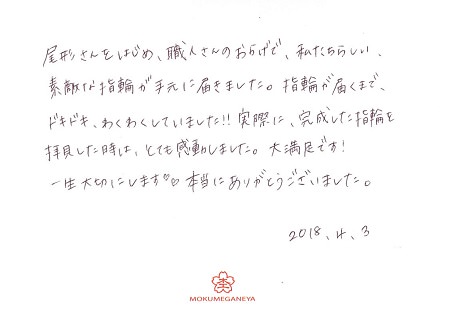 尾形さんをはじめ、職人さんのおかげで、私たちらしい、
素敵な指輪が手元に届きました。指輪が届くまで、
ドキドキ、わくわくしていました!!実際に、完成した指輪を
拝見した時は、とても感動しました。大満足です!
一生大切にします♡♡本当にありがとうございました。
2018.4.3
MOKUMEGANEYA